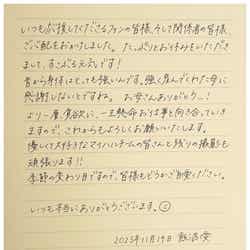 いつも応援してくださるファンの皆様、そして関係者の皆様
ご心配をおかけしました。たっぷりとお休みをいただき
まして、すこぶる元気です!
昔から身体はとっても強いんです。強く産んでくれた母に
感謝しないとですね。お母さんありがとう…!
より一層貪欲に、一生懸命お仕事と向き合っていき
ますので、これからもよろしくお願いいたします。
優しくて大好きなマイハルチームの皆さんと残りの撮影も
頑張ります!!
季節の変わり目ですので、皆様もどうかご自愛ください。
いつも本当にありがとうございます。
2025年11月19日 飯沼愛